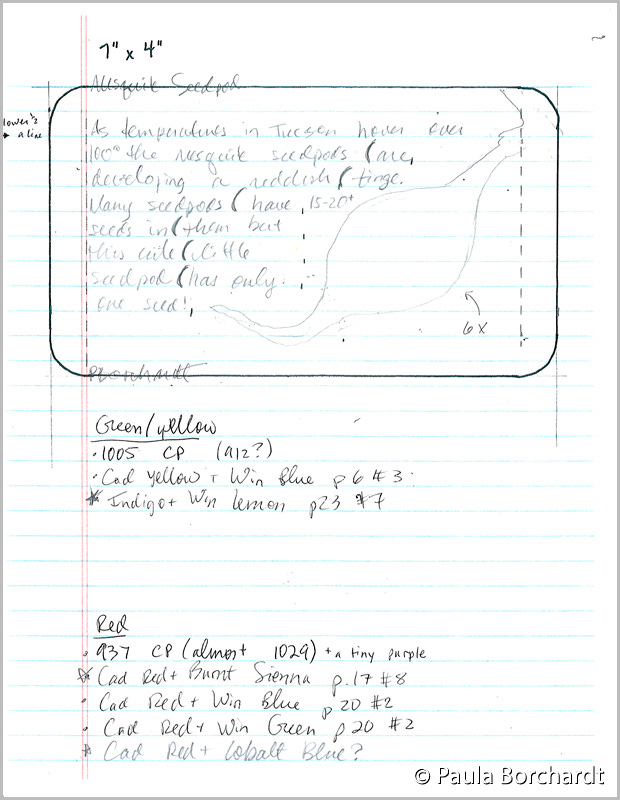 7" x 4"
Mesquite Seedpod
lower 1/2
a line
As temperatures in Tucson hover over
100° the mesquite seedpods (are
developing a reddish (tinge.
Many seedpods (have 15-20+
seeds in (them but
this cute (little
seedpod (has only
one seed!
6x
PBorchardt
Green/yellow
· 1005 CP (912?)
· Cad yellow + Win Blue p 6 #3
* Indigo + Win lemon p23 #7
Red
· 937 CP (almost 1029) + a tiny purple
* Cad Red + Burnt Sienna p.17 #8
· Cad Red + Win Blue p 20 #2
· Cad Red + Win Green p 20 #2
* Cad Red + Cobalt Blue?
© Paula Borchardt